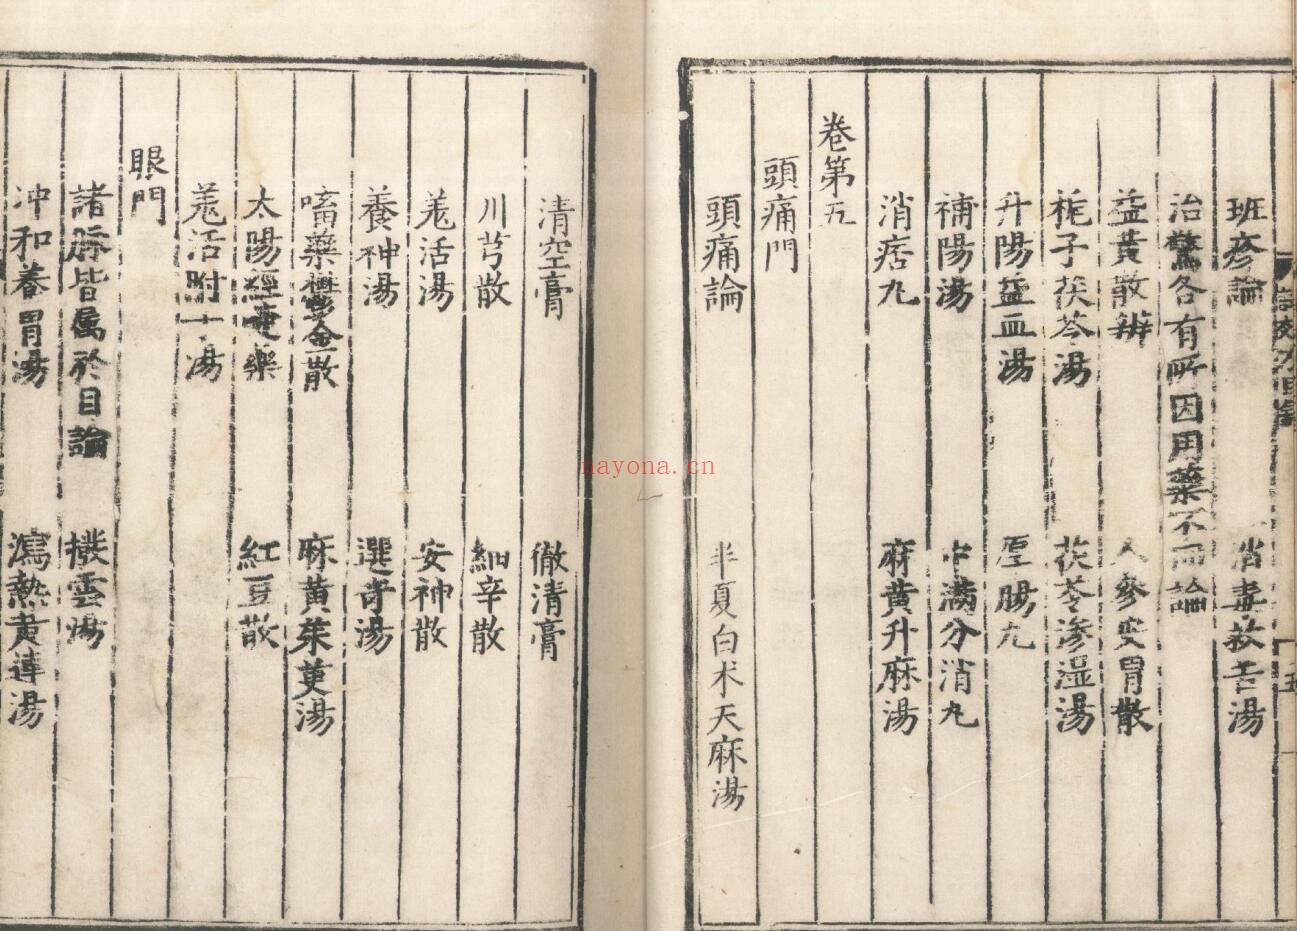 班疹論 消毒救苦湯
治驚各有所因用藥不同論
益黄散辨 人參安胃散
栀子茯苓湯 茯苓滲濕湯
升陽益血湯 厚腸九
補陽湯 中滿分消九
消痞九 麻黄升麻湯
卷第五
頭痛門
頭痛論 半夏白术天麻湯
清空膏 徹清膏
川芎散 細辛散
羗活湯 安神散
養神湯 選奇湯
㗜藥鬱金散 麻黄茱萸湯
太陽經嚏藥 紅豆散
羗活附子湯
眼門
諸脉皆属於目論 撥雲湯
冲和養胃湯 瀉熱黄連湯
nayona.cn